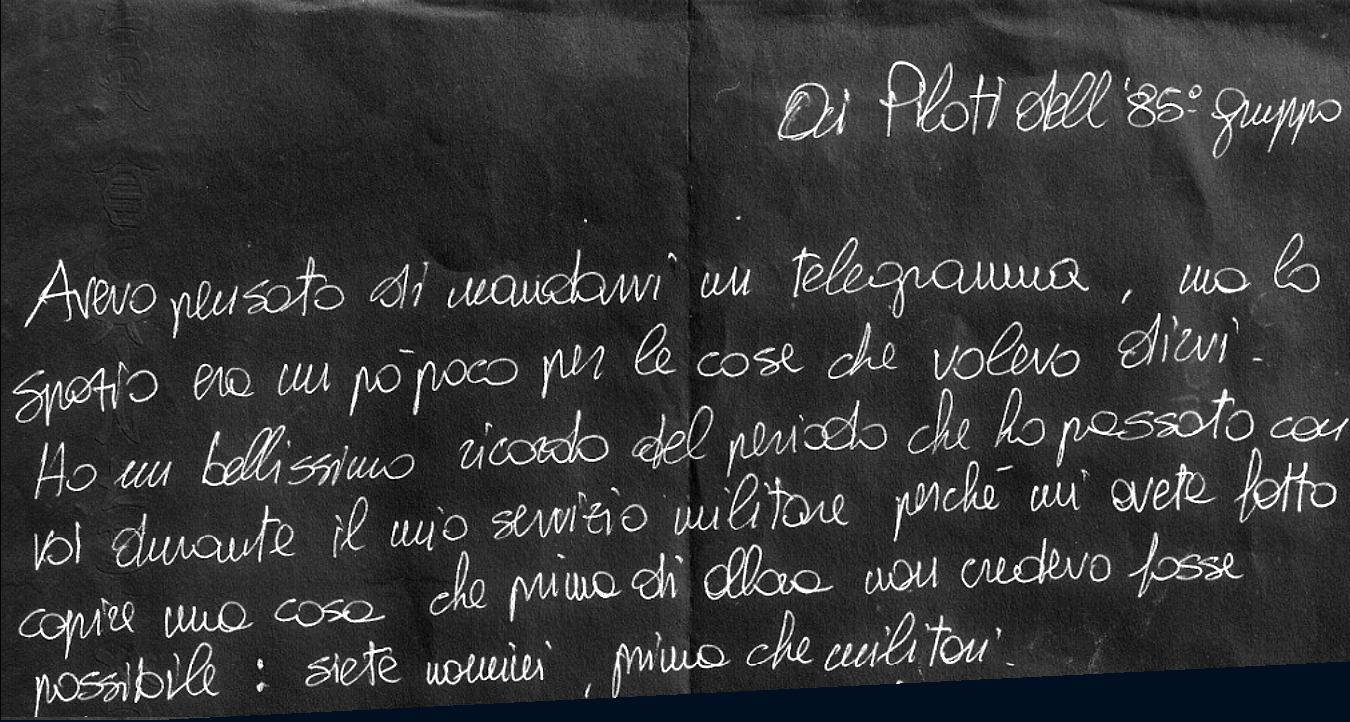 Ai Piloti dell'85° gruppo
Avevo pensato di mandarvi un telegramma, ma lo
spazio era un pò poco per le cose che volevo dirvi.
Ho un bellissimo ricordo del periodo che ho passato con
voi durante il mio servizio militare perchè mi avete fatto
capire una cosa che prima di allora non credevo fosse
possibile: siete uomini, prima che militari.